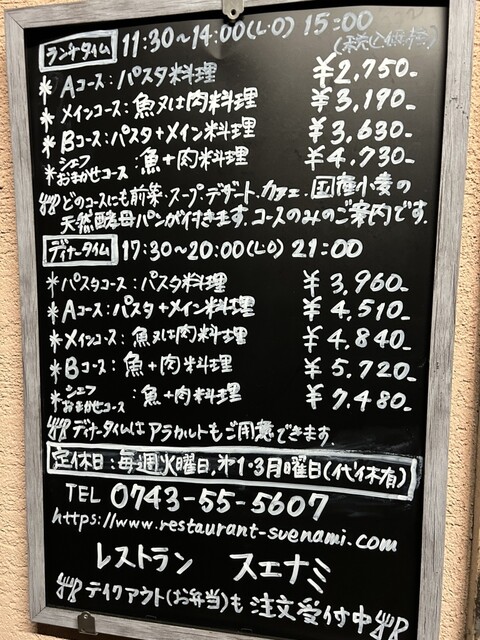 ランチタイム 11:30~14:00(L.O) 15:00
(税込価格)
*Aコース:パスタ料理 ¥2,750-
*メインコース:魚又は肉料理 ¥3,190-
*Bコース:パスタ+メイン料理 ¥3,630-
*シェフおまかせコース:魚+肉料理 ¥4,730-
どのコースにも前菜・スープ・デザート・カフェ・国産小麦の
天然酵母パンが付きます。コースのみのご案内です。
ディナータイム 17:30~20:00(L.O) 21:00
*パスタコース:パスタ料理 ¥3,960-
*Aコース:パスタ+メイン料理 ¥4,510-
*メインコース:魚又は肉料理 ¥4,840-
*Bコース:魚+肉料理 ¥5,720-
*シェフおまかせコース:魚+肉料理 ¥7,480-
ディナータイムはアラカルトもご用意できます。
定休日:毎週火曜日,第1・3月曜日(代休有)
TEL 0743-55-5607
https://www.restaurant-suenami.com
レストラン スエナミ
テイクアウト(お弁当)も注文受付中